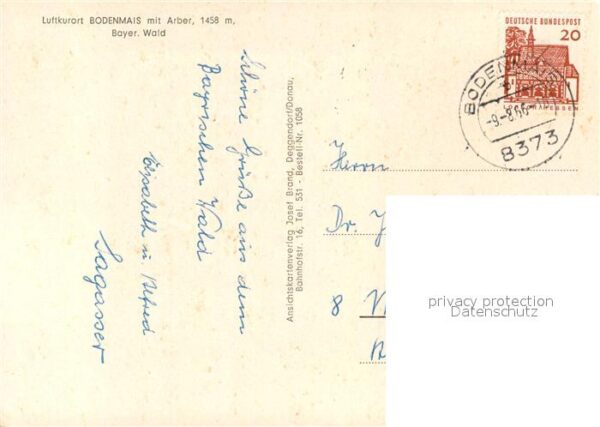 Luftkurort BODENMAIS mit Arber, 1458 m,
Bayer. Wald
Schöne Grüße aus dem
Bayrischen Wald
Elisabeth u. Alfred
Sagasser
Ansichtskartenverlag Josef Brand, Deggendorf/Donau,
Bahnhofstr. 16, Tel. 531 - Bestell-Nr. 1058
DEUTSCHE BUNDESPOST
20
LORSCH/HESSEN
BODENMAIS
-9.-8.66-
8373
Herrn
Dr. J
8
privacy protection
Datenschutz